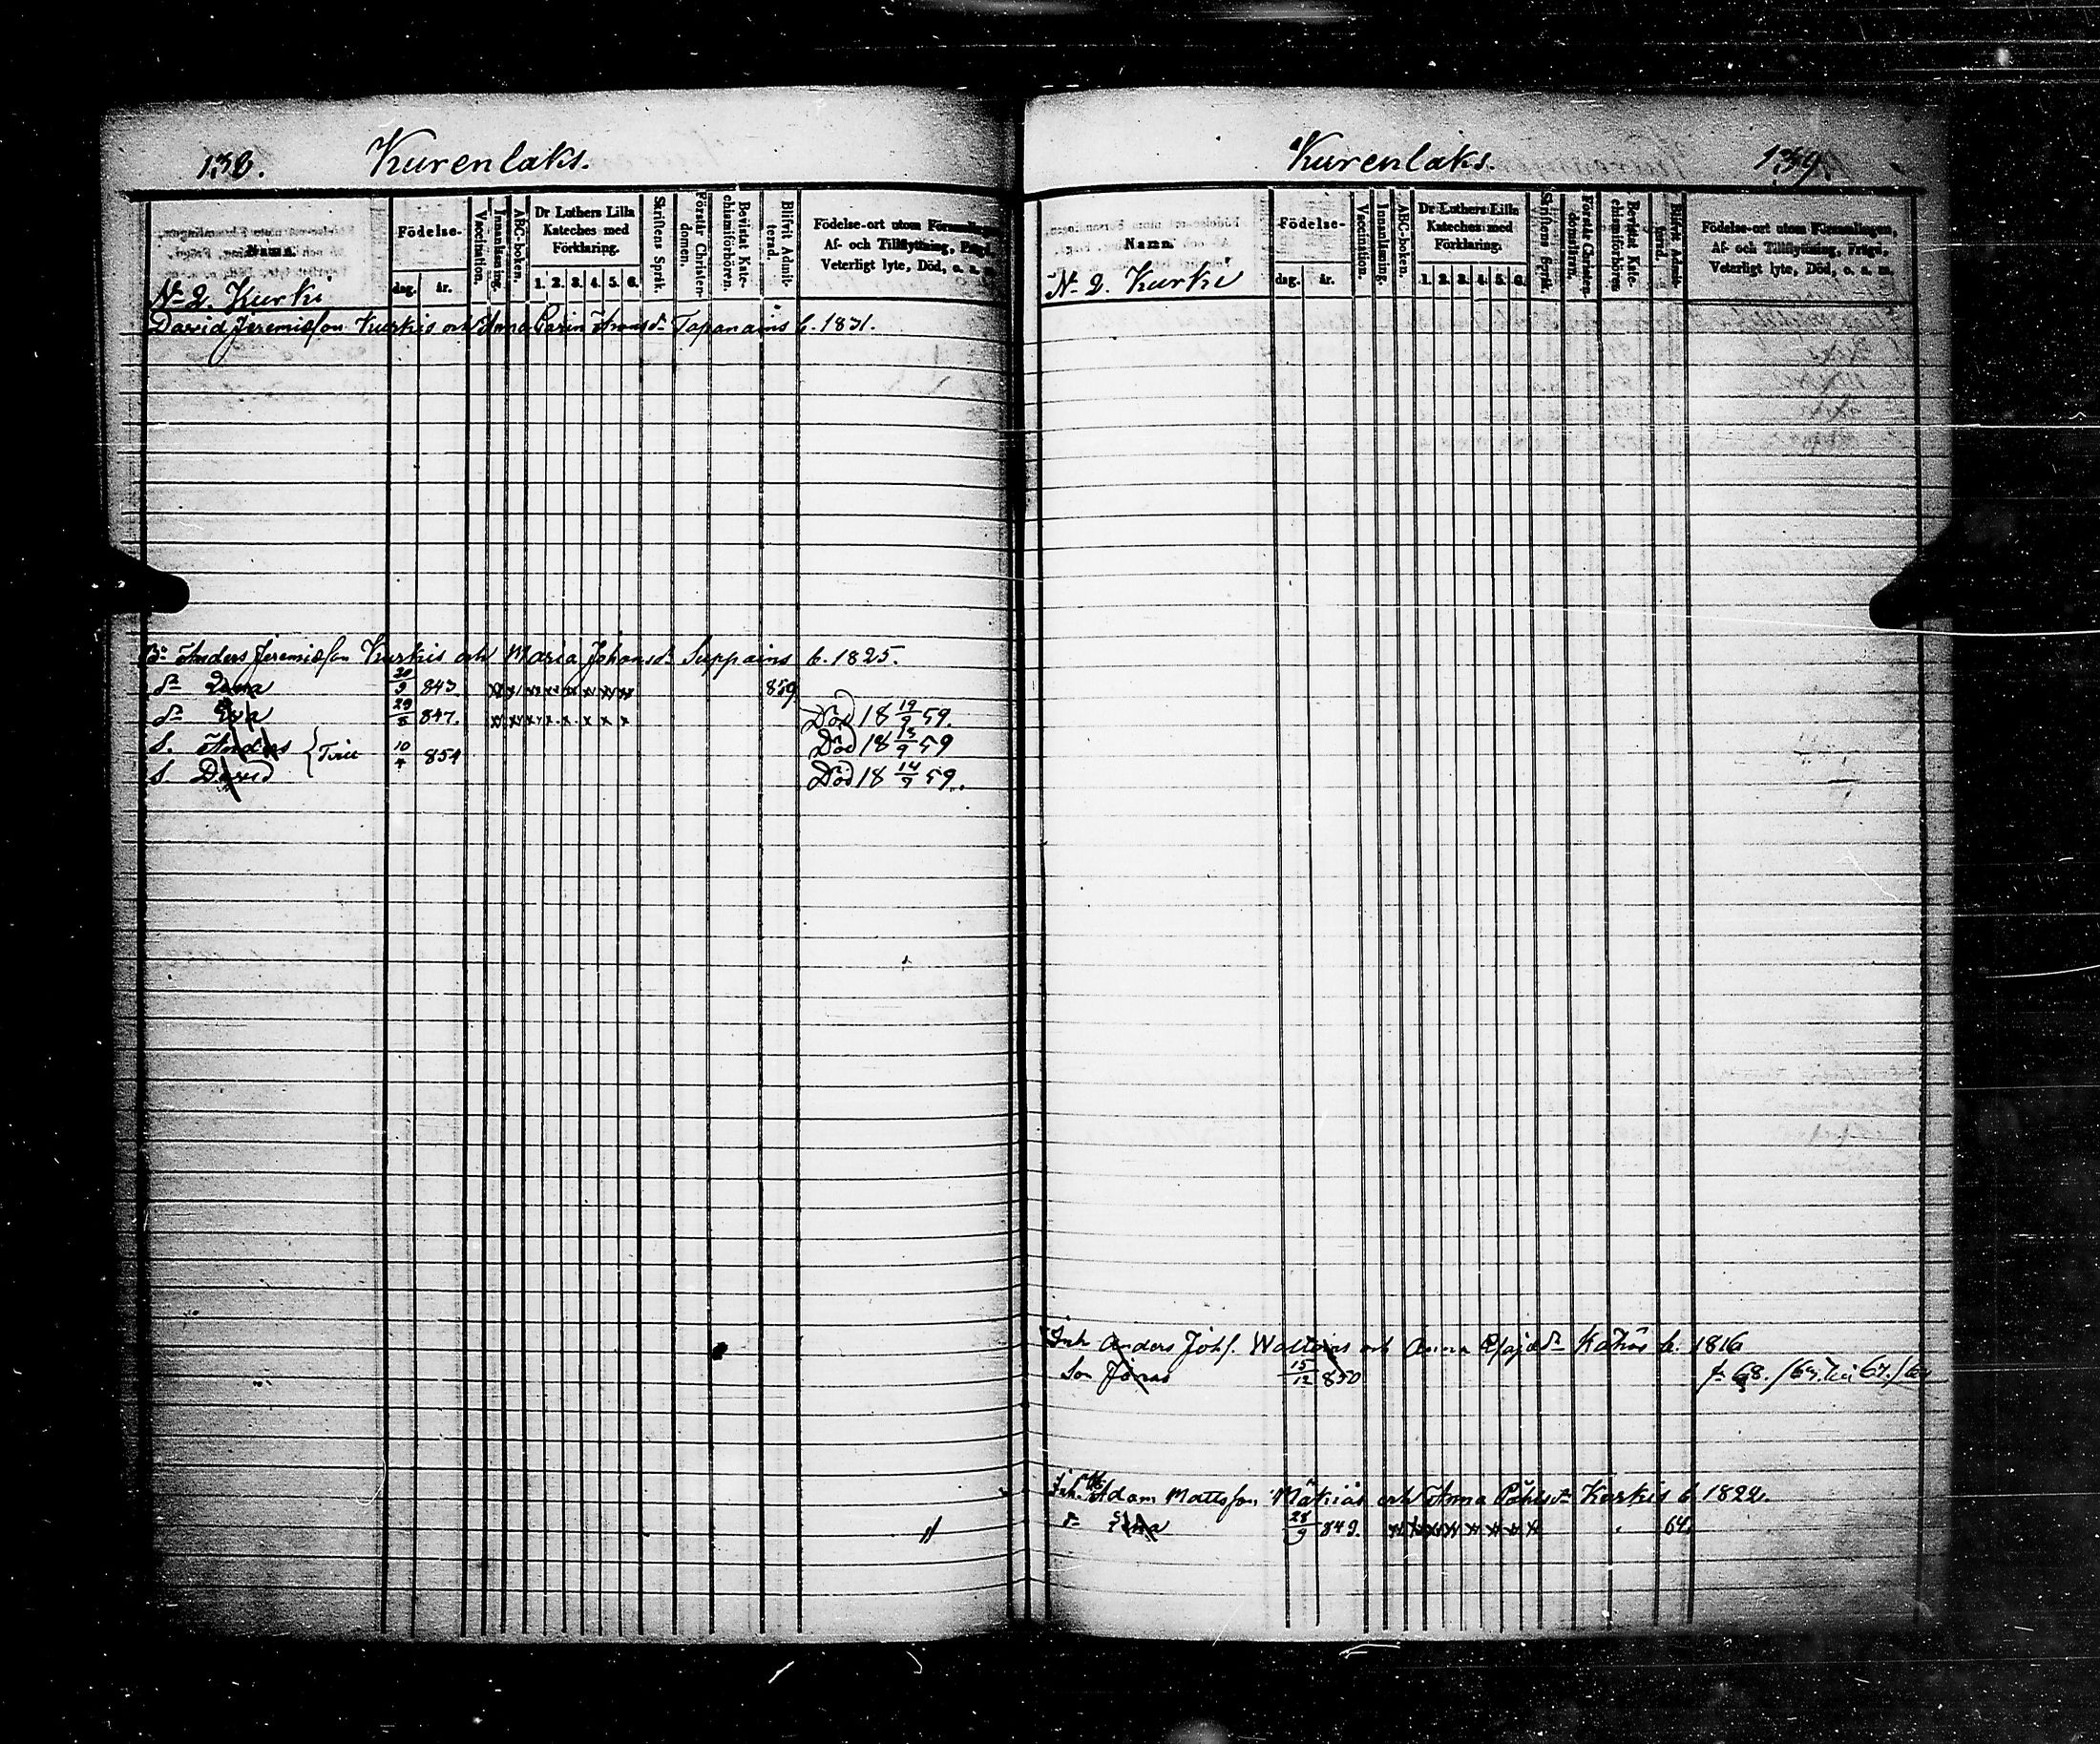 138. Kurenlaks.
Namn.
Födelse-
dag. år.
Vaccination.
Innanläsning.
ABC-boken.
Dr Luthers Lilla Kateches med Förklaring.
1. 2. 3. 4. 5. 6.
Skriftens Språk.
Förstår Christen-domen.
Bevistat Kate-chismiförhören.
Blifvit Admit-terad.
Födelse-ort utom Församlingen,
Af- och Tillflyttning, Frägd,
Veterligt lyte, Död, o. s. m.
No 2. Kurki
David Jeremiæson Kurkis och Anna Carin Tapanains b. 1831.
Br Anders Jeremiæson Kurkis och Maria Johansdr Suppains b. 1825.
dr 20/9 843. x x x x x x x x 859
dr Eva 29/8 847. x x x x x x x x Död 18 19/9 59.
S. Anders 10/4 854 Död 18 13/9 59
S. David Död 18 14/9 59.
Kurenlaks. 139.
Namn
Födelse-
dag. år.
Vaccination.
Innanläsning.
ABC-boken.
Dr Luthers Lilla Kateches med Förklaring.
1. 2. 3. 4. 5. 6.
Skriftens Språk.
Förstår Christen-domsläran.
Bevistat Kate-chismiförhören
Blifvit Admit-terad.
Födelse-ort utom Församlingen,
Af- och Tillflyttning, Frägd,
Veterligt lyte, Död, o. s. m.
No 2. Kurki
Inh Anders Johs. och Anna b. 1816
Son Jonas 15/12 850
Inh. Adam Mattsson och Anna Kurkis b. 1822.
dr 28/9 849. x x x x x x x x 64.